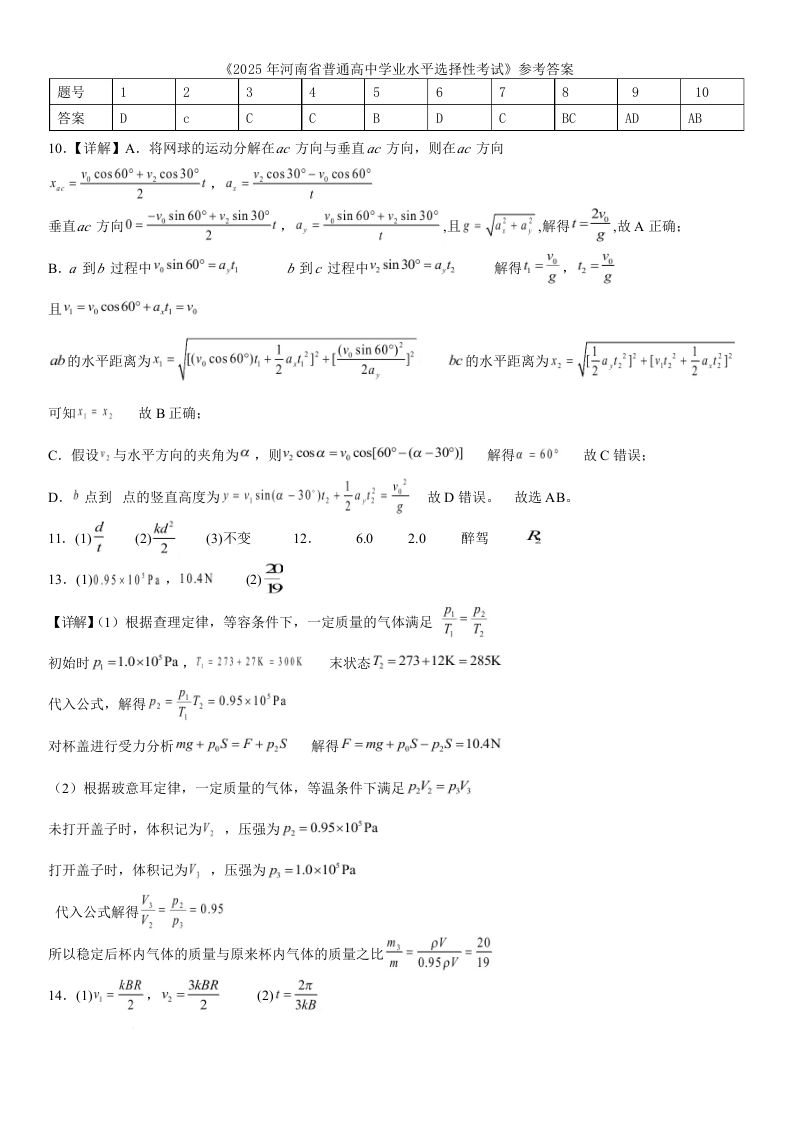 《2025 年河南省普通高中学业水平选择性考试》参考答案
题号 1 2 3 4 5 6 7 8 9 10
答案 D c C C B D C BC AD AB
10.【详解】A．将网球的运动分解在 ac 方向与垂直 ac 方向，则在 ac 方向
x_ac = (v₀ cos60° + v₂ cos30°)/2 t ，a_x = (v₂ cos30° − v₀ cos60°)/t
垂直 ac 方向 0 = (−v₀ sin60° + v₂ sin30°)/2 t ，a_y = (v₀ sin60° + v₂ sin30°)/t ,且 g = √(a_x² + a_y²) ,解得 t = 2v₀/g ,故 A 正确；
B．a 到 b 过程中 v₀ sin60° = a_y t₁ b 到 c 过程中 v₂ sin30° = a_y t₂ 解得 t₁ = v₀/g ，t₂ = v₀/g
且 v₁ = v₀ cos60° + a_x t₁ = v₀
ab 的水平距离为 x₁ = √([(v₀ cos60°)t₁ + 1/2 a_x t₁²]² + [(v₀ sin60°)²/2a_y]²) bc 的水平距离为 x₂ = √([1/2 a_y t₂²]² + [v₁t₂² + 1/2 a_x t₂²]²)
可知 x₁ = x₂ 故 B 正确；
C．假设 v₂ 与水平方向的夹角为 α ，则 v₂ cosα = v₀ cos[60° − (α − 30°)] 解得 α = 60° 故 C 错误；
D．b 点到 点的竖直高度为 y = v₁ sin(α − 30°)t₂ + 1/2 a_y t₂² = v₀²/g 故 D 错误。 故选 AB。
11．(1) d/t (2) kd²/2 (3)不变 12． 6.0 2.0 醉驾 R₂
13．(1) 0.95 × 10⁵ Pa ，10.4N (2) 20/19
【详解】（1）根据查理定律，等容条件下，一定质量的气体满足 p₁/T₁ = p₂/T₂
初始时 p₁ = 1.0×10⁵ Pa ，T₁ = 273 + 27K = 300K 末状态 T₂ = 273 + 12K = 285K
代入公式，解得 p₂ = p₁/T₁ T₂ = 0.95 × 10⁵ Pa
对杯盖进行受力分析 mg + p₀S = F + p₂S 解得 F = mg + p₀S − p₂S = 10.4N
（2）根据玻意耳定律，一定质量的气体，等温条件下满足 p₂V₂ = p₃V₃
未打开盖子时，体积记为 V₂ ，压强为 p₂ = 0.95×10⁵ Pa
打开盖子时，体积记为 V₃ ，压强为 p₃ = 1.0×10⁵ Pa
代入公式解得 V₃/V₂ = p₂/p₃ = 0.95
所以稳定后杯内气体的质量与原来杯内气体的质量之比 m₃/m = ρV/0.95ρV = 20/19
14．(1) v₁ = kBR/2 ，v₂ = 3kBR/2 (2) t = 2π/3kB